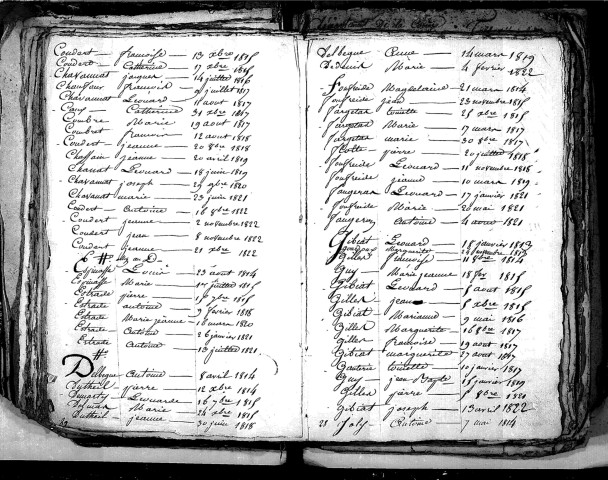 Coudert — françoise — 13 xbre 1815
Coudert — Catherine — 17 xbre 1815
Chavannat — jacques — 14 juillet 1816
Chaufour — françois — 9 juillet 1817
Chavannat — Léonard — 11 aout 1817
Catherine — 31 xbre 1817
Coubre — Marie — 19 aout 1817
Coubret — françois — 12 aout 1818
Coudert — jeanne — 20 8bre 1818
jeanne — 20 avril 1819
Léonard — 18 juin 1819
Chavannat — joseph — 25 9bre 1820
Chavannat — marie — 23 juin 1821
Coudert — Antoine — 16 8bre 1822
Coudert — jeanne — 2 novembre 1822
Coudert — jean — 8 novembre 1822
Coudert — jeanne — 21 xbre 1822
E #
Louis — 23 aout 1814
Marie — 17 juillet 1815
Estrade — pierre — 1815
Estrade — antoine — 9 février 1818
Estrade — Marie jeanne — 16 mars 1820
Estrade — Antoine — 26 janvier 1821
Estrade — Antoine — 13 juillet 1821
#
Delbegue — Antoine — 8 avril 1814
Dutheil — pierre — 12 xbre 1814
Léonarde — 16 7bre 1815
Marie — 24 xbre 1815
Dutheil — jeanne — 30 juin 1818
Delbegue — Anne — 14 mars 1819
Marie — 4 février 1822
Fonfreide — Magdelaine — 21 mars 1814
Fonfreide — jean — 23 novembre 1815
Fargetas — toinette — 25 xbre 1815
Fargetas — Marie — 7 mars 1817
Fargetas — marie — 30 8bre 1817
pierre — 20 juillet 1818
Fonfreide — Léonard — 11 novembre 1818
Fonfreide — jeanne — 10 mars 1819
Faugeron — Léonard — 17 janvier 1821
Fonfreide — Marie — 20 mai 1821
Faugeron — Antoine — 4 aout 1821
Gibiat — Léonard — 18 janvier 1813
Marguerite — 28 novembre
Gillet — françoise — 11 8bre 1814
Guy — Marie jeanne — 18 1815
Gibiat — Léonard — 5 aout 1815
Gillet — jean — 5 xbre 1815
Gibiat — Marianne — 9 mai 1816
Gillet — Marguerite — 16 8bre 1817
Gillet — françoise — 19 aout 1817
Gibiat — marguerite — 27 aout 1817
Gauterie — toinette — 10 janvier 1817
Guy — jean Bapte — 15 janvier 1819
Gillet — pierre — 5 8bre 1821
Gibiat — joseph — 13 avril 1822
28 Joly — Antoine — 7 mai 1814